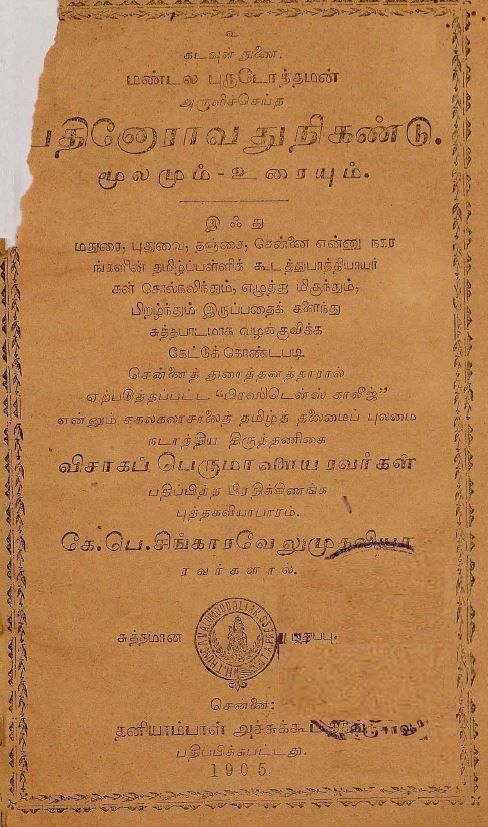 உ
கடவுள் துணை.
மண்டல புருடோத்தமன்
அருளிச்செய்த
பதினோராவதுநிகண்டு.
மூலமும் - உரையும்.
இஃது
மதுரை, புதுவை, தஞ்சை, சென்னை என்னு நகர
ங்களின் தமிழ்ப்பள்ளிக் கூடத்துபாத்தியாயர்
கள் சொல்நலிந்தும், எழுத்து மிகுந்தும்,
பிறழ்ந்தும் இருப்பதைக் களைந்து
சுத்தபாடமாக வழங்குவிக்க
கேட்டுக்கொண்டபடி
சென்னைத் துரைத்தனத்தாரால்
ஏற்படுத்தப்பட்ட "பிரஸிடென்ஸ் காலீஜ்"
என்னும் சகலகலாசாலைத் தமிழ்த் தலைமைப் புலமை
நடாத்திய திருத்தணிகை
விசாகப் பெருமாளைய ரவர்கள்
பதிப்பித்த பிரதிக்கிணங்க
புத்தகவியாபாரம்.
கே. பெ. சிங்காரவேலுமுதலியா
ரவர்களால்.
சுத்தமான
சென்னை:
தனியாம்பாள் அச்சுக்கூ
பதிப்பிக்கபட்டது.
1905.